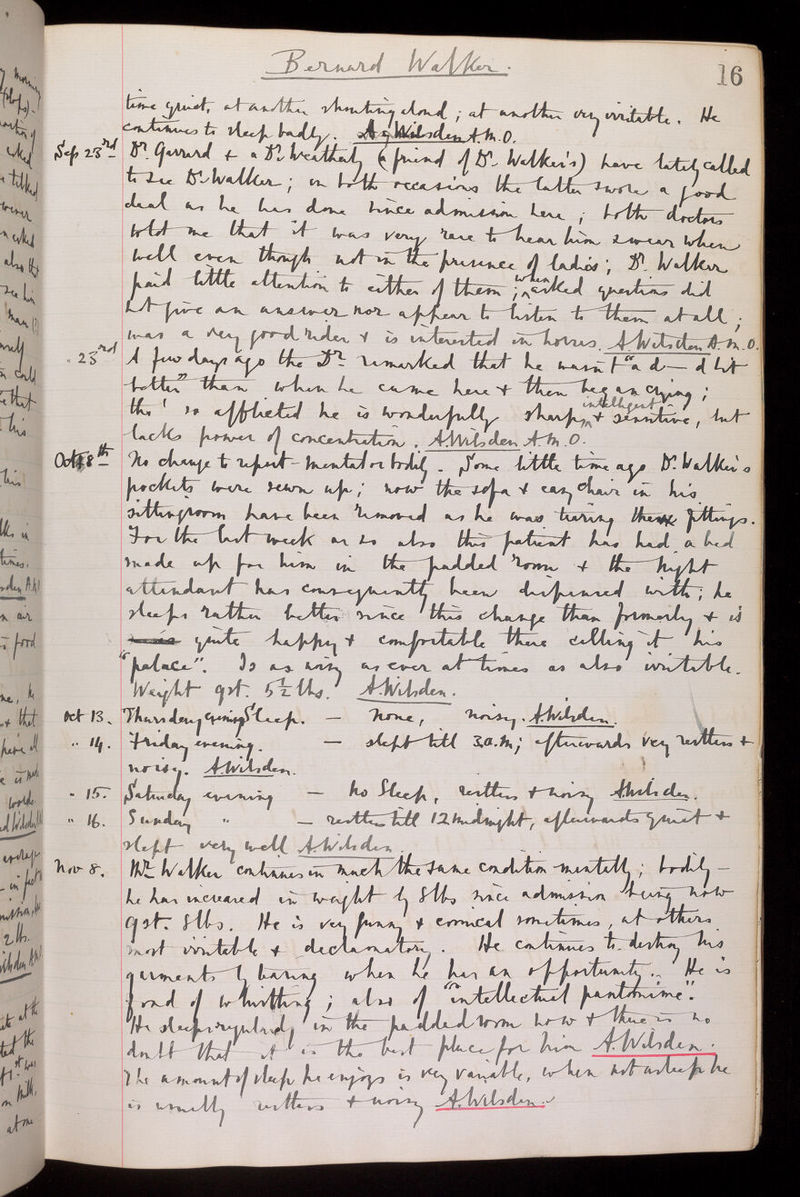 Bernard Walker.
16
time quiet, at another shouting aloud; at another very irritable. He
continues to sleep badly. A. Wilsden A.M.O.
Sep 23rd Dr. Gerrard & a Dr. Weatherly (a friend of Dr. Walker's) have lately called
to see Dr. Walker; on both occasions the latter swore a good
deal as he has done since admission here; both doctors
told me that it was very rare to hear him swear when
well even though not in the presence of ladies; Dr. Walker
paid little attention to either of them; when asked questions did
not give an answer nor appear to listen to them at all;
was a very good rider & is interested in horses. A Wilsden A.M.O.
" 23rd A few days ago the Dr. remarked that he wasn't "a d—d bit
better" than when he came here & then began crying;
tho' so afflicted he is wonderfully sharp, intelligent & sensitive, but
lacks power of concentration. A Wilsden A.M.O.
Oct 8th No change to report - mental or bodily. Some little time ago Dr. Walker's
pockets were sewn up; now the sofa & easy chair in his
sittingroom have been removed as he was tearing the fittings.
For the last week or so also this patient has had a bed
made up for him in the padded room & the night
attendant has consequently been dispensed with; he
sleeps rather better since this change than formerly & is
quite happy & comfortable there calling it his
"palace". Is as noisy as ever at times as also irritable.
Weight 9st. 5½ lbs. A. Wilsden.
Oct 13. Thursday evening Sleep. — None, noisy. A. Wilsden.
" 14. Friday evening. — slept till 3.a.m; afterwards very restless &
noisy. A Wilsden.
" 15. Saturday evening — No Sleep, restless & noisy A Wilsden.
" 16. Sunday " — restless till 12 midnight, afterwards quiet &
slept very well A Wilsden.
Nov 8. Mr. Walker continues in much the same condition mentally; bodily -
he has increased in weight by 8 lbs since admission being now
9st. 8lbs. He is very funny & comical sometimes, at others
most irritable & declamatory. He continues to destroy his
garments by tearing when he has an opportunity. He is
fond of whistling; also of "intellectual pantomime".
He sleeps regularly in the padded room now & there is no
doubt that it is the best place for him A. Wilsden.
The amount of sleep he enjoys is very variable, when not asleep he
is usually restless & noisy A. Wilsden.